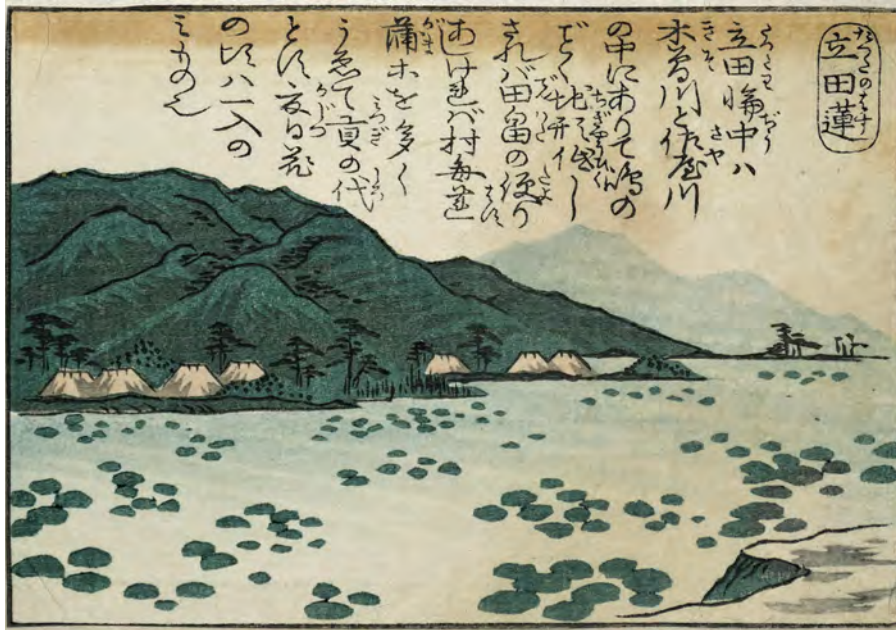 立田蓮
立田輪中ハ
木曽川と佐屋川
の中にありて嶋の
ごとく地形低し
されバ田畠の便り
あしけれバ村毎蓮
蒲等を多く
うゑて貢の代
とす夏日花
の頃ハ一入の
ミもの也